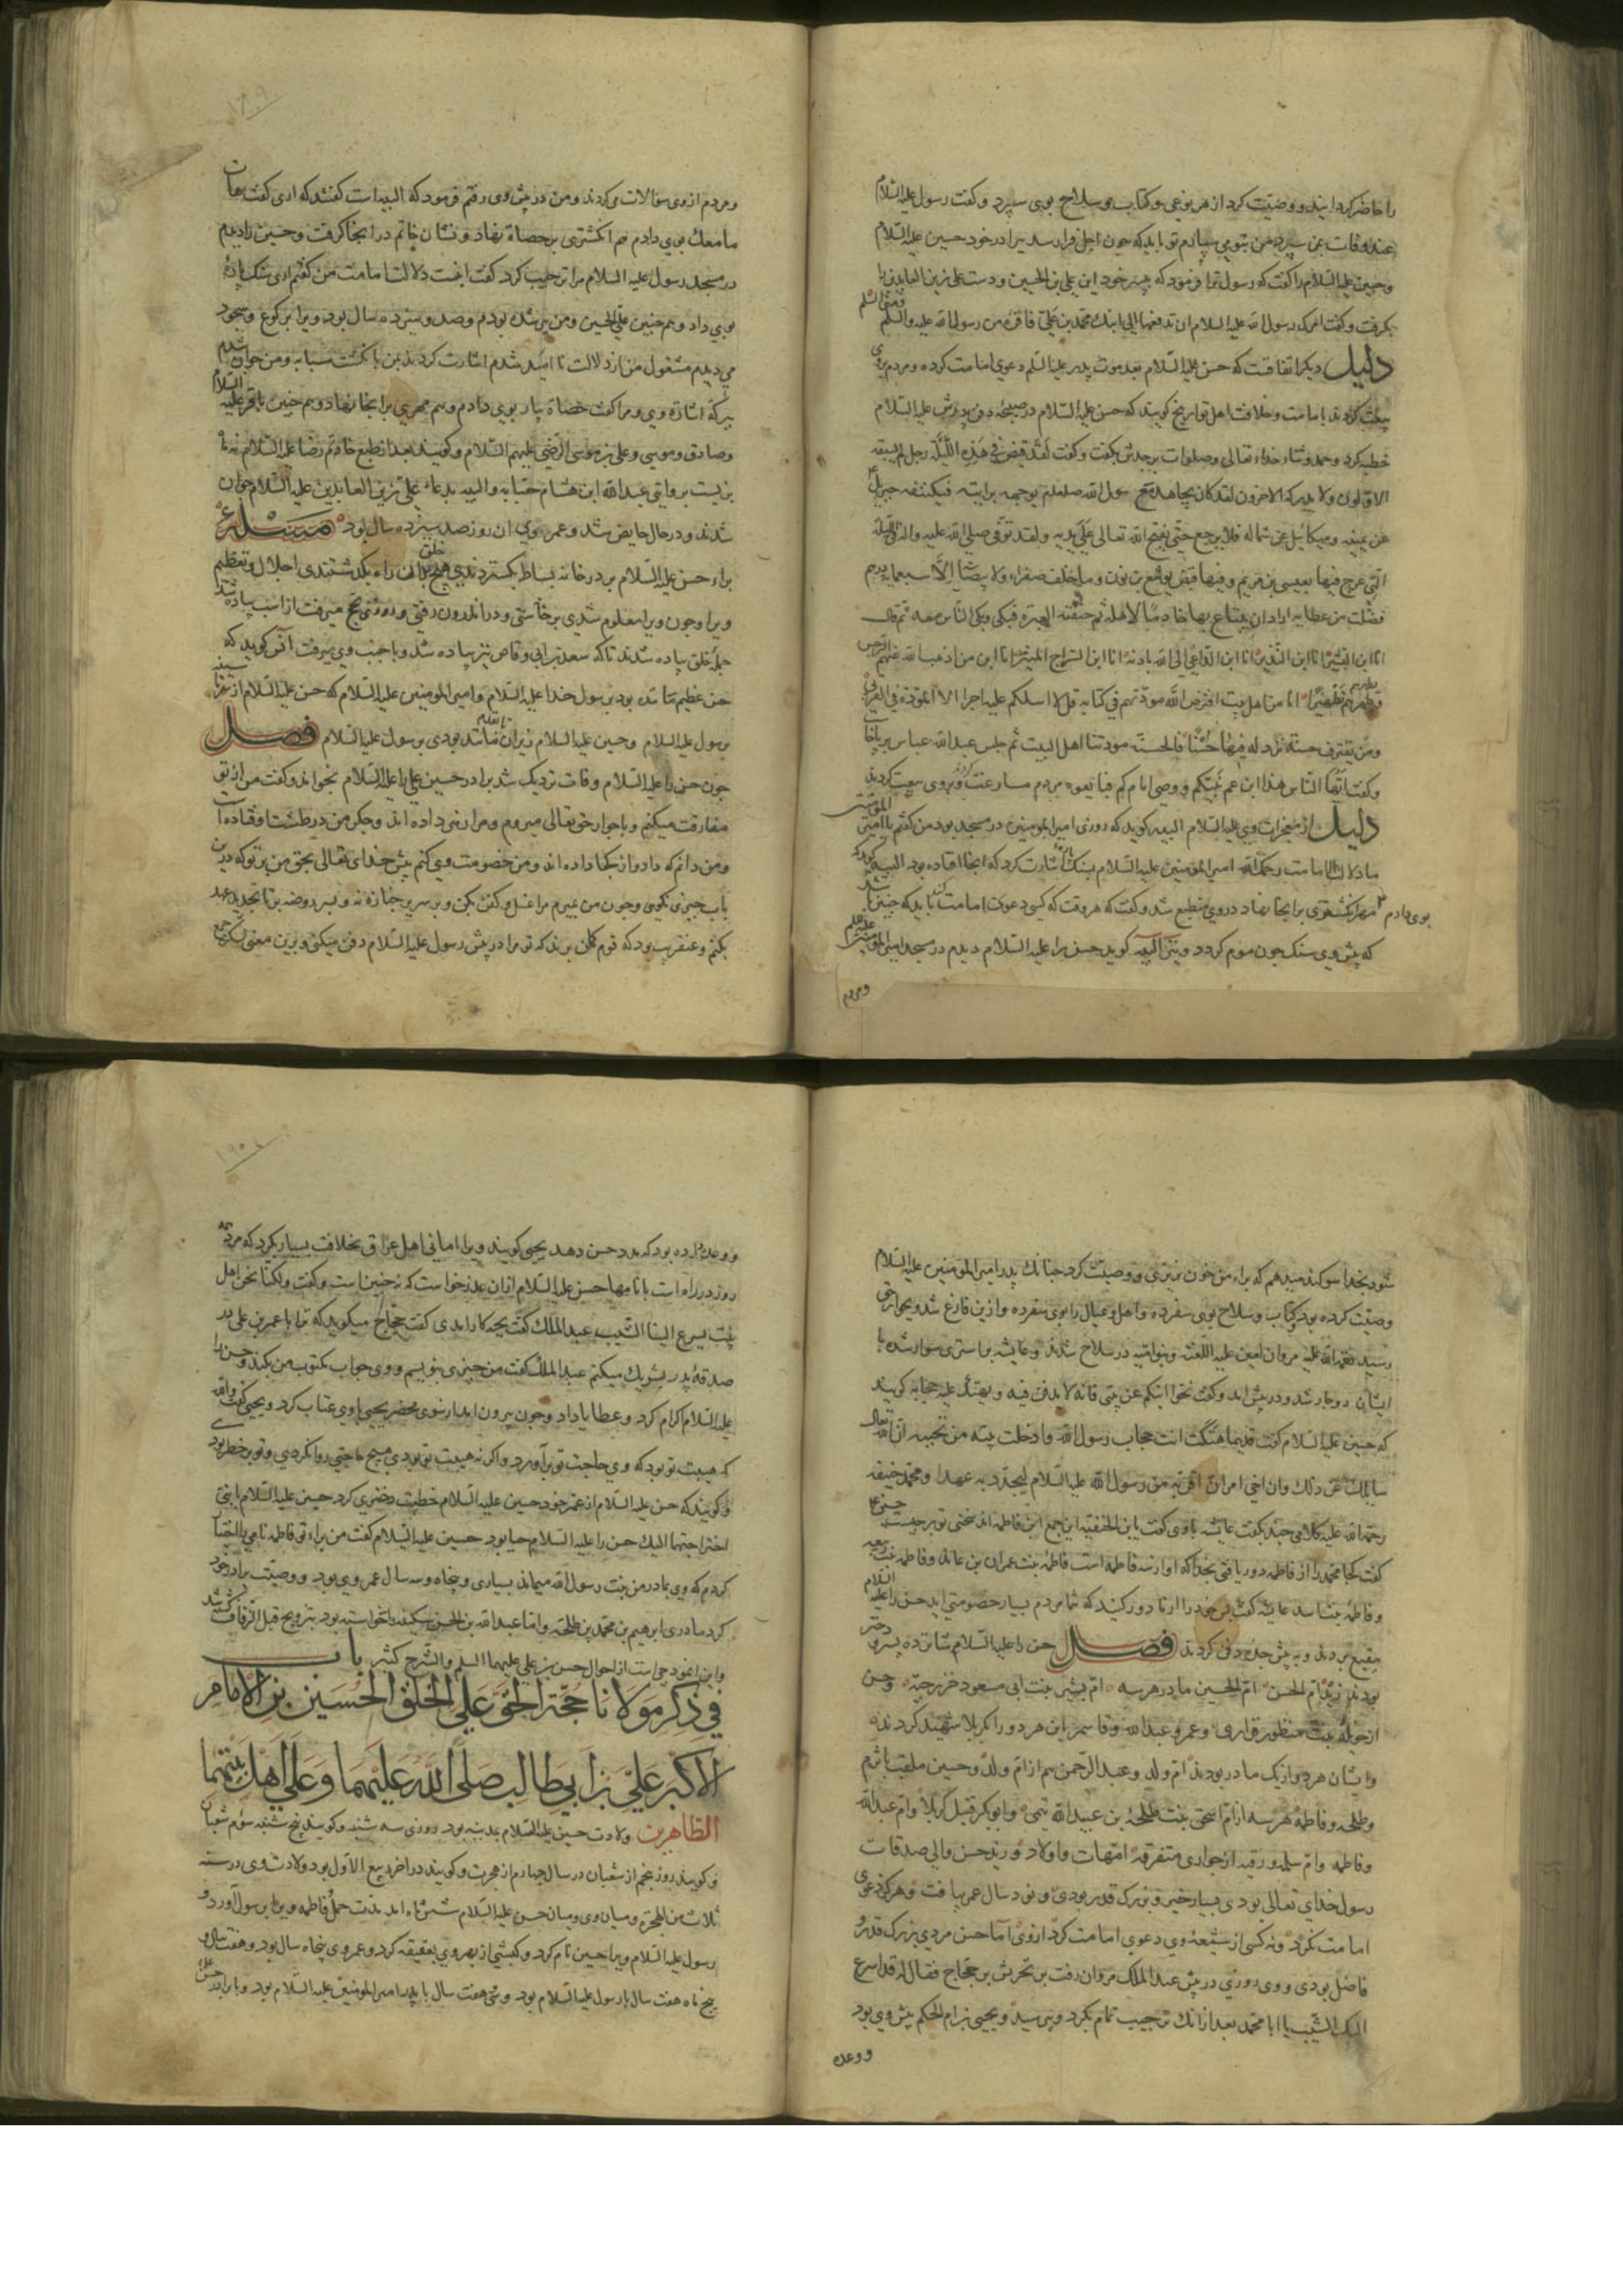 را حاضر کردانید و وصیت کرد از هر نوعی و کتاب و سلاح بوی سپرد و کفت رسول علیه السلام
عند وفات بمن سپرد من بتو می سپارم تو باید که چون اجل فرا رسد ببرادر خود حسین علیه السلام
و حسین علیه السلام را کفت که رسول ترا فرمود که به پسر خود این علی بن الحسین و دست علی زین العابدین را
بکرفت و کفت امرک رسول الله علیه السلام ان تدفعها الی ابنک محمد بن علی فاقره من رسول الله علیه والسلم
دلیل دیکر اتفاقست که حسن علیه السلام بعد موت پدر علیه السلم دعوی امامت کرده و مردم بر وی
بیعت کردند بامامت و خلافت اهل تواریخ کویند که حسن علیه السلام در صبیحه دفن پدرش علیه السلام
خطبه کرد و حمد و ثناء خداء تعالی و صلوات بر جدش بکفت و کفت لقد قبض فی هذه اللیلة رجل لم یسبقه
الاولون ولا یدرکه الاخرون لقد کان یجاهد مع رسول الله صلعم یوجهه برایته فیکنفه جبریل
عن یمینه و میکائیل عن شماله فلا یرجع حتی یفتح الله تعالی علی یدیه و لقد توفی صلی الله علیه واله فی اللیلة
التی عرج فیها بعیسی بن مریم و فیها قبض یوشع بن نون و ما خلف صفراء ولا بیضاء الا سبعمایه درهم
فضلت من عطایه اراد ان یبتاع بها خادما لاهله ثم خنقته العبرة فبکی و بکی الناس معه ثم قال
انا ابن البشیر انا ابن النذیر انا ابن الداعی الی الله باذنه انا ابن السراج المنیر انا ابن من اذهب الله عنهم الرجس
وطهرهم تطهیرا انا من اهل بیت افترض الله مودتهم فی کتابه قل لا اسلکم علیه اجرا الا المودة فی القربی
ومن یقترف حسنة نزد له فیها حسنا فالحسنة مودتنا اهل البیت ثم جلس عبد الله عباس برپا خاست
و کفت ایها الناس هذا ابن عم نبیکم و وصی امامکم فبایعوه مردم مسارعت کردند و بروی بیعت کردند
دلیل از معجزات وی علیه السلام البیه کوید که روزی امیر المومنین در مسجد بود من کفتم یا امیر المومنین
ما دلالة الامامت رحمک الله امیر المومنین علیه السلام بسنک پاره اشارت کرد که انجا افتاده بود البیه کوید که
بوی دادم مهر انکشتری بر انجا نهاد در وی منطبع شد و کفت که هر وقت که کسی دعوی امامت کند باید که چنین باشد
که پیش وی سنک چون موم کردد و نیز البیه کوید حسن را علیه السلام دیدم در مسجد امیر المومنین علیه السلم
و مردم
و مردم از وی سوالات می کردند و من در پیش وی رفتم فرمود که البیه است کفتند که اری کفت هات
ما معک بوی دادم هم انکشتری بر حصاة نهاد و نشان خاتم در انجا کرفت و حسین را دیدم
در مسجد رسول علیه السلام مرا ترحیب کرد کفت اینست دلالت امامت من کفتم اری سنک پاره
بوی داد و هم چنین علی الحسین و من پیر شده بودم و صد و سیزده سال بود ویرا بر کوع و سجود
می دیدم مشغول من از دلالت نا امید شدم اشارت کرد بمن با نکشت سبابه و من جوان شدم
ببرکة اشاره وی و مرا کفت حصاة بیار بوی دادم وهم مهری بر انجا نهاد و هم چنین باقر علیه السلام
وصادق و موسی و علی بن موسی الرضی علیهم السلام و کویند بعد از طبع خاتم رضا علیه السلام نه ماه
بزیست بروایتی عبد الله ابن هشام حبابه والبیه بدعاء علی زین العابدین علیه السلام جوان
شدند و در حال حایض شد و عمر وی ان روز صد سیزده سال بود مسئله
براء حسن علیه السلام بر در خانه بساط بکستردندی هیچ خلق بران راه نکذشتندی اجلال و تعظیم
ویرا و چون ویرا معلوم شدی برخاستی و در اندرون رفتی و روزی بحج میرفت از اسب پیاده شد
جمله خلق پیاده شدند تا که سعد بن ابی وقاص نیز پیاده شد و با جنب وی میرفت انس کوید که
حسن عظیم مانده بود برسول خدا علیه السلام و امیر المومنین علیه السلام که حسن علیه السلام از سر تا سینه
برسول علیه السلام و حسین علیه السلام زیران مانند بودی برسول علیه السلام فصل
چون حسن را علیه السلام وفات نزدیک شد برادر حسین علی را علیه السلام بخواند و کفت من از تو
مفارقت میکنم و با جوار حق تعالی میروم و مرا زهر داده اند و جکر من در طشت افتاده است
ومن دانم که داد و از کجا داده اند و من خصومت وی کنم پیش خدای تعالی بحق من بر تو که درین
باب چیزی نکوی و چون من بمیرم مرا غسل و کفن بکن و بر سریر جنازه نه و بسر روضه برتا تجدید عهد
بکنم و عنقریب بود که قوم کمان برند که تو مرا در پیش رسول علیه السلام دفن میکنی و برین معنی لشکر جمع
شود بخدا سوکند میدهم که براء من خون نریزی و وصیت کرد چنانک پدر امیر المومنین علیه السلام
وصیت کرده بود و کتاب و سلاح بوی سپرده و اهل و عیال را بوی سپرده و از این فارغ شد و بجوار حق
رسید رحمة الله علیه مروان لعین علیه اللعنه و بنو امیه در سلاح شدند و عایشه بر استری سوار شده با
ایشان دوچار شد و در پیش امد و کفت نحوا ابنکم عن بیتی فانه لا یدفن فیه و یهتک علیه حجابه کویند
که حسین علیه السلام کفت قدیما هتکت انت حجاب رسول الله وادخلت بیته من لا یحب ان الله تعالی
سایلک عن ذلک وان اخی امرنی ان اقربه من رسول الله علیه السلام لیجدد به عهدا و محمد حنفیه
رحمة الله علیه کلامی چند بکفت عایشه باوی کفت یا بن الحنفیه این جمع ابن فاطمه اند سخن تو بر چیست حسین ع
کفت کجا محمد را از فاطمه دور یافتی بخدا که او از سه فاطمه است فاطمه بنت عمران بن عاید و فاطمه بنت ربیعه
و فاطمه بنت اسد عایشه کفت پسر خود را از ما دور کنید که شما مردم بسیار خصومتی اید حسن را علیه السلام
ببقیع بردند و به پیش جده دفن کردند فصل حسن را علیه السلام شانزده پسر و دختر
بودند زید و ام الحسن ام الحسین مادر هر سه ام بشیر بنت ابی مسعود خزرجیه و حسن
از خوله بنت منظور فزاری و عمرو و عبد الله و قاسم این هر دو را بکربلا شهید کردند
و ایشان هر دو از یک مادر بودند ام ولد و عبد الرحمن هم از ام ولد و حسین ملقب باثرم
و طلحه و فاطمه هر سه از ام اسحق بنت طلحه بن عبید الله تیمی و ابو بکر قتیل کربلا و ام عبد الله
و فاطمه و ام سلمه و رقیه از جواری متفرقه امهات و اولاد و زید حسن والی صدقات
رسول خدای تعالی بودی بسیار خیر و بزرک قدر بودی و نود سال عمر یافت و هرکز دعوی
امامت نکرد و نه کسی از شیعه وی دعوی امامت کرد از وی اما حسن مردی بزرک قدر و
فاضل بودی و وی روزی در پیش عبد الملک مروان رفت بن تحریش بر حجاج فقال له قد اسرع
الیک الشیب یا ابا محمد بعد از انک ترحیب تمام بکرد و پرسید و یحیی بن ام الحکم پیش وی بود
و وعده
و وعده داده بود که مدد حسن دهد یحیی کویند ویرا امانی اهل عراق بخلافت بسیار بکرد که هر
روز در راه است بانامها حسن علیه السلام ازان عذر خواست که نه چنین است و کفت ولکنا نحن اهل
بیت یسرع الینا الشیب عبد الملک کفت بچه کار امدی کفت حجاج میکوید که ترا با عمر بن علی در
صدقه پدر شریک میکنم عبد الملک کفت من چیزی بنویسم و وی جواب مکتوب من بکند و حسن را
علیه السلام اکرام کرد و عطایا داد و چون بیرون امد از نزوی محضر یحیی با وی عتاب کرد و یحیی کفت والله
که هیبت تو بود که وی حاجت تو براورد و اکر نه هیبت تو بودی هیچ حاجتی روا نکردی و تو بر خطر بود
و کویند که حسن علیه السلام از عم خود حسین علیه السلام خطبت دختری کرد حسین علیه السلام یا بنی
اختر احبهما الیک حسن را علیه السلام حیا بود حسین علیه السلام کفت من براء تو فاطمه نامی را اختیار
کردم که وی بمادر من بنت رسول الله میماند بسیاری و پنجاه و سه سال عمر وی بود و وصیت برادر خود
کرد مادری ابرهیم بن محمد بن طلحه و اما عبد الله بن الحسن سکینه را خواسته بود بتزویج قبل الزفاف کشته شد
واین انموذجی است از احوال حسن بن علی علیهما السلم والشرح کثیر باب
فی ذکر مولانا حجة الحق علی الخلق الحسین بن الامام
الاکبر علی بن ابی طالب صلی الله علیهما وعلی اهل بیتهما
الطاهرین ولادت حسین علیه السلام بمدینه بود روزی سه شنبه و کویند پنج شنبه سوم شعبان
و کویند روز پنجم از شعبان در سال چهارم از هجرت و کویند در اخر ربیع الاول بود ولادت وی در سنه
ثلاث من الهجرة و میان وی و میان حسن علیه السلام شش ماه امد مدت حمل فاطمه ویرا برسول آورد و
رسول علیه السلام ویرا حسین نام کرد و کبشی از بهر وی بعقیقه کرد و عمر وی پنجاه سال بود و هفت سال و
پنج ماه هفت سال با رسول علیه السلام بود و سی هفت سال با پدر امیر المومنین علیه السلام بود و با برادر حسن